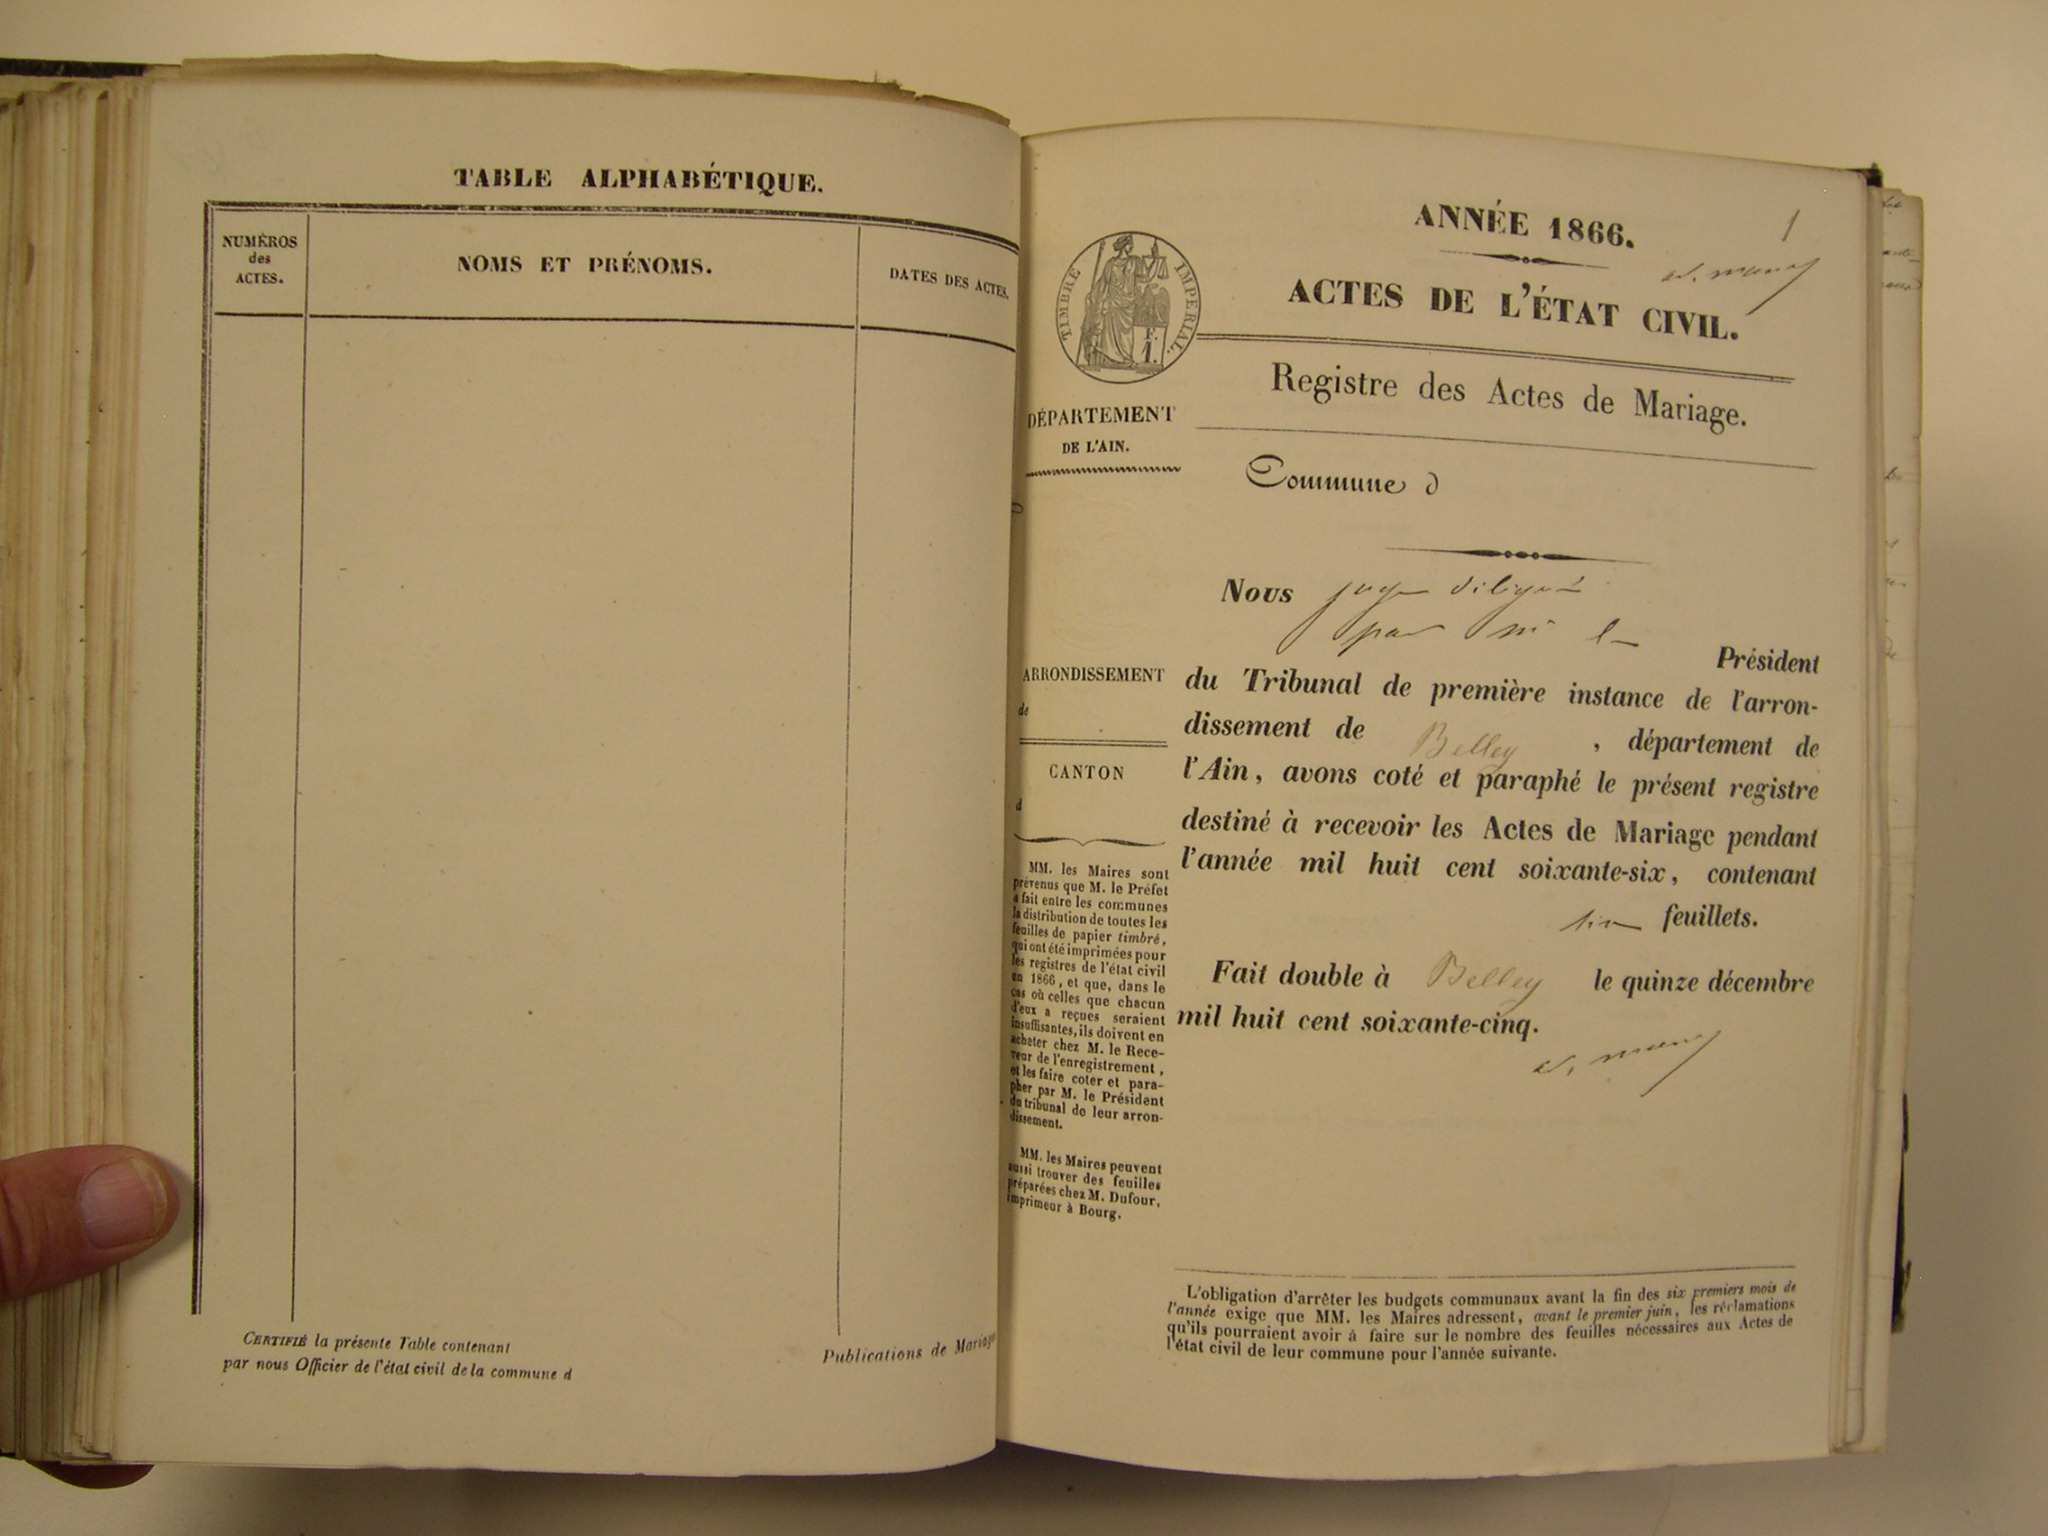 TABLE ALPHABÉTIQUE.
NUMÉROS
des
ACTES.
NOMS ET PRÉNOMS.
DATES DES ACTES.
CERTIFIÉ la présente Table contenant
par nous Officier de l'état civil de la commune d
Publications de Mariage
ANNÉE 1866.
1
ACTES DE L'ÉTAT CIVIL.
TIMBRE IMPERIAL.
F.
1.
Registre des Actes de Mariage.
DÉPARTEMENT
DE L'AIN.
Commune d
Nous juge délégué
par Mr le
Président
ARRONDISSEMENT
de
CANTON
d
du Tribunal de première instance de l'arron-
dissement de Belley, département de
l'Ain, avons coté et paraphé le présent registre
destiné à recevoir les Actes de Mariage pendant
l'année mil huit cent soixante-six, contenant
six feuillets.
Fait double à Belley le quinze décembre
mil huit cent soixante-cinq.
MM. les Maires sont
prévenus que M. le Préfet
a fait entre les communes
la distribution de toutes les
feuilles de papier timbré,
qui ont été imprimées pour
les registres de l'état civil
en 1866, et que, dans le
cas où celles que chacun
d'eux a reçues seraient
insuffisantes, ils doivent en
acheter chez M. le Rece-
veur de l'enregistrement,
et les faire coter et para-
pher par M. le Président
du tribunal de leur arron-
dissement.
MM. les Maires peuvent
aussi trouver des feuilles
préparées chez M. Dufour,
imprimeur à Bourg.
L'obligation d'arrêter les budgets communaux avant la fin des six premiers mois de
l'année exige que MM. les Maires adressent, avant le premier juin, les réclamations
qu'ils pourraient avoir à faire sur le nombre des feuilles nécessaires aux Actes de
l'état civil de leur commune pour l'année suivante.